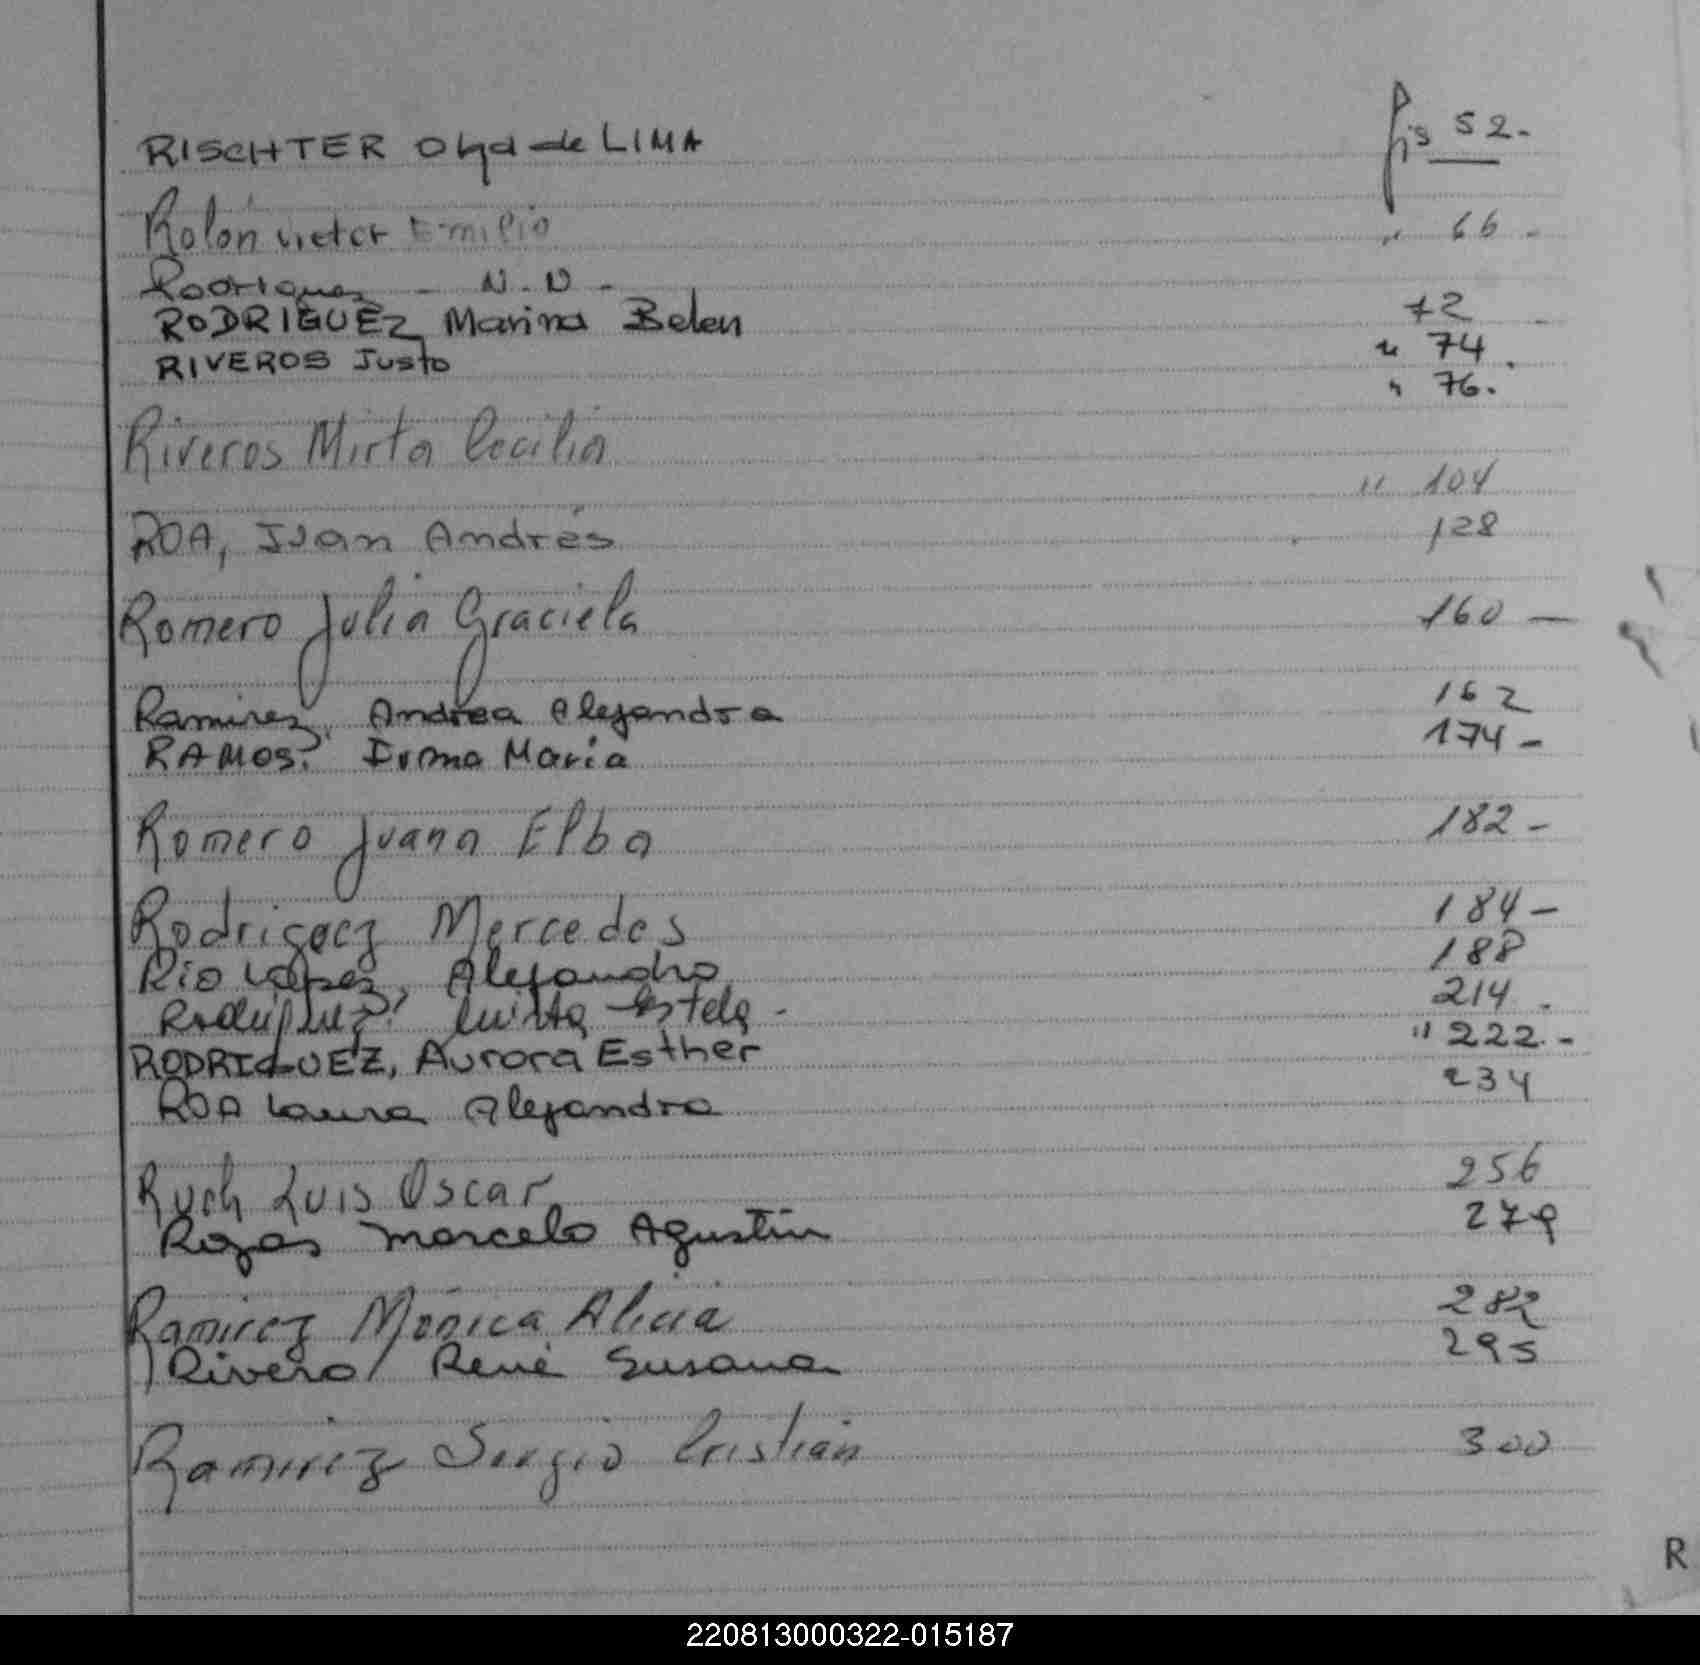 RISCHTER Olga de LIMA fjs 52.-
Rolón Victor Emilio " 66.-
Rodriguez - N.N -
RODRIGUEZ Marina Belen 72
RIVEROS Justo " 74
" 76.
Riveros Mirta Cecilia
" 104
ROA, Juan Andrés 128
Romero Julia Graciela 160 -
Ramirez, Andrea Alejandra 162
RAMOS, Irma Maria 174 -
Romero Juana Elba 182 -
Rodriguez Mercedes 184 -
Rio Lopez, Alejandro 188
Rodriguez, Estela - 214.
RODRIGUEZ, Aurora Esther " 222.-
ROA Laura Alejandra 234
Ruch Luis Oscar 256
Rojas Marcelo Agustin 279
Ramirez Mónica Alicia 282
Rivero René Susana 295
Ramirez Sergio Cristián 300
R
220813000322-015187